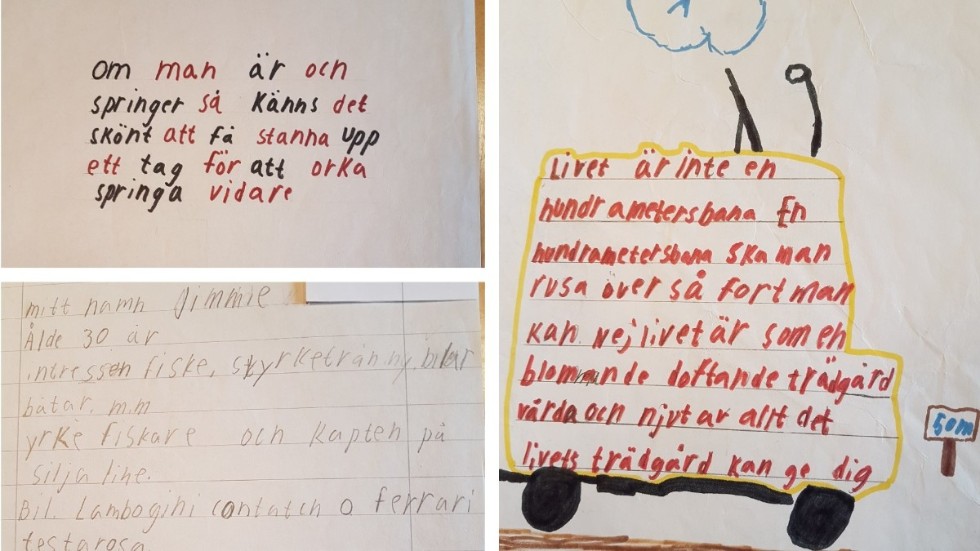 om man är och
springer så känns det
skönt att få stanna upp
ett tag för att orka
springa vidare
mitt namn Jimmie
Ålde 30 år
intressen fiske, styrketräning, bilar
båtar. m.m
yrke fiskare och kapten på
silja line.
Bil. Lambogihi contatch o ferrari
testarosa
Livet är inte en
hundrametersbana En
hundrametersbana ska man
rusa över så fort man
kan. Nej livet är som en
blommande doftande trädgård
vårda och njut av allt det
livets trädgård kan ge dig
50m